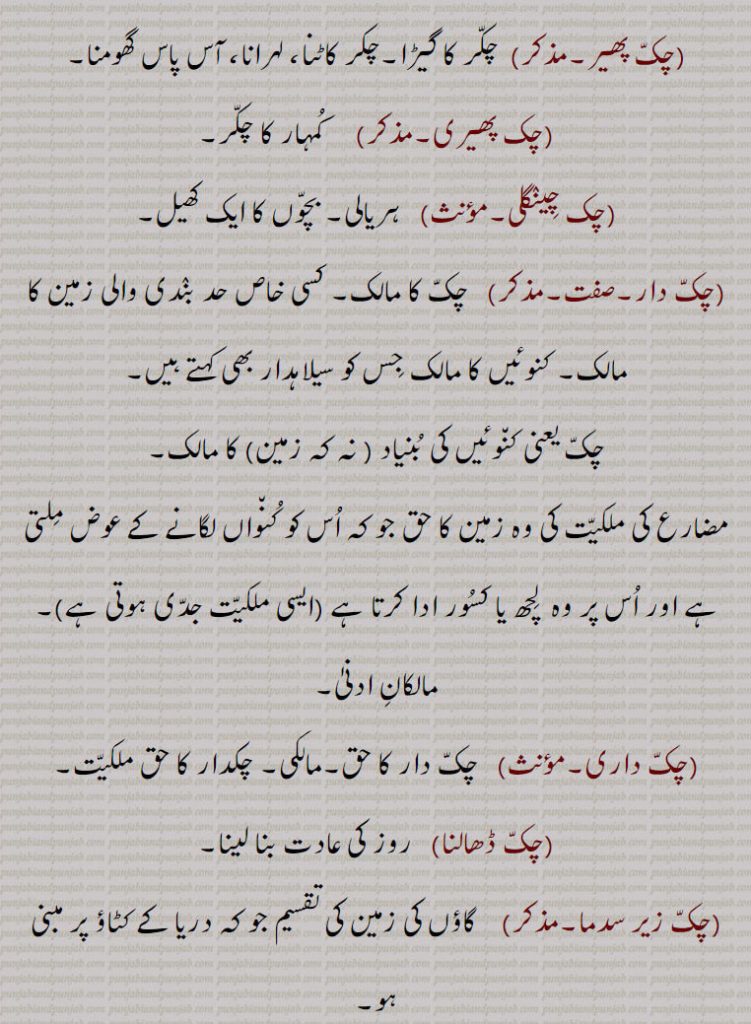 (چکّ پھیر۔مذکر) چکّر کا گیڑا۔چکر کاٹنا، لہرانا، آس پاس گھومنا۔
(چک پھیری۔مذکر) کُمہار کا چکّر۔
(چک چِینگلی۔مؤنث) ہریالی۔ بچّوں کا ایک کھیل۔
(چکّ دار۔صفت۔مذکر) چکّ کا مالک۔ کسی خاص حد بنْدی والی زمین کا
مالک۔ کنوئیں کا مالک جِس کو سیلاہدار بھی کہتے ہیں۔
چکّ یعنی کنّوئیں کی بُنیاد ( نہ کہ زمین) کا مالک۔
مضارع کی ملکیّت کی وہ زمین کا حق جو کہ اُس کو کُنّواں لگانے کے عوض مِلتی
ہے اور اُس پر وہ لِچھ یا کسُور ادا کرتا ہے (ایسی ملکیّت جدّی ہوتی ہے)۔
مالکانِ ادنیٰ۔
(چکّ داری۔مؤنث) چکّ دار کا حق۔مالکی۔ چکدار کا حق ملکیّت۔
(چکّ ڈھالنا) روز کی عادت بنا لینا۔
(چکّ زیر سدما۔مذکر) گاؤں کی زمین کی تقسیم جو کہ دریا کے کٹاؤ پر مبنی
ہو۔